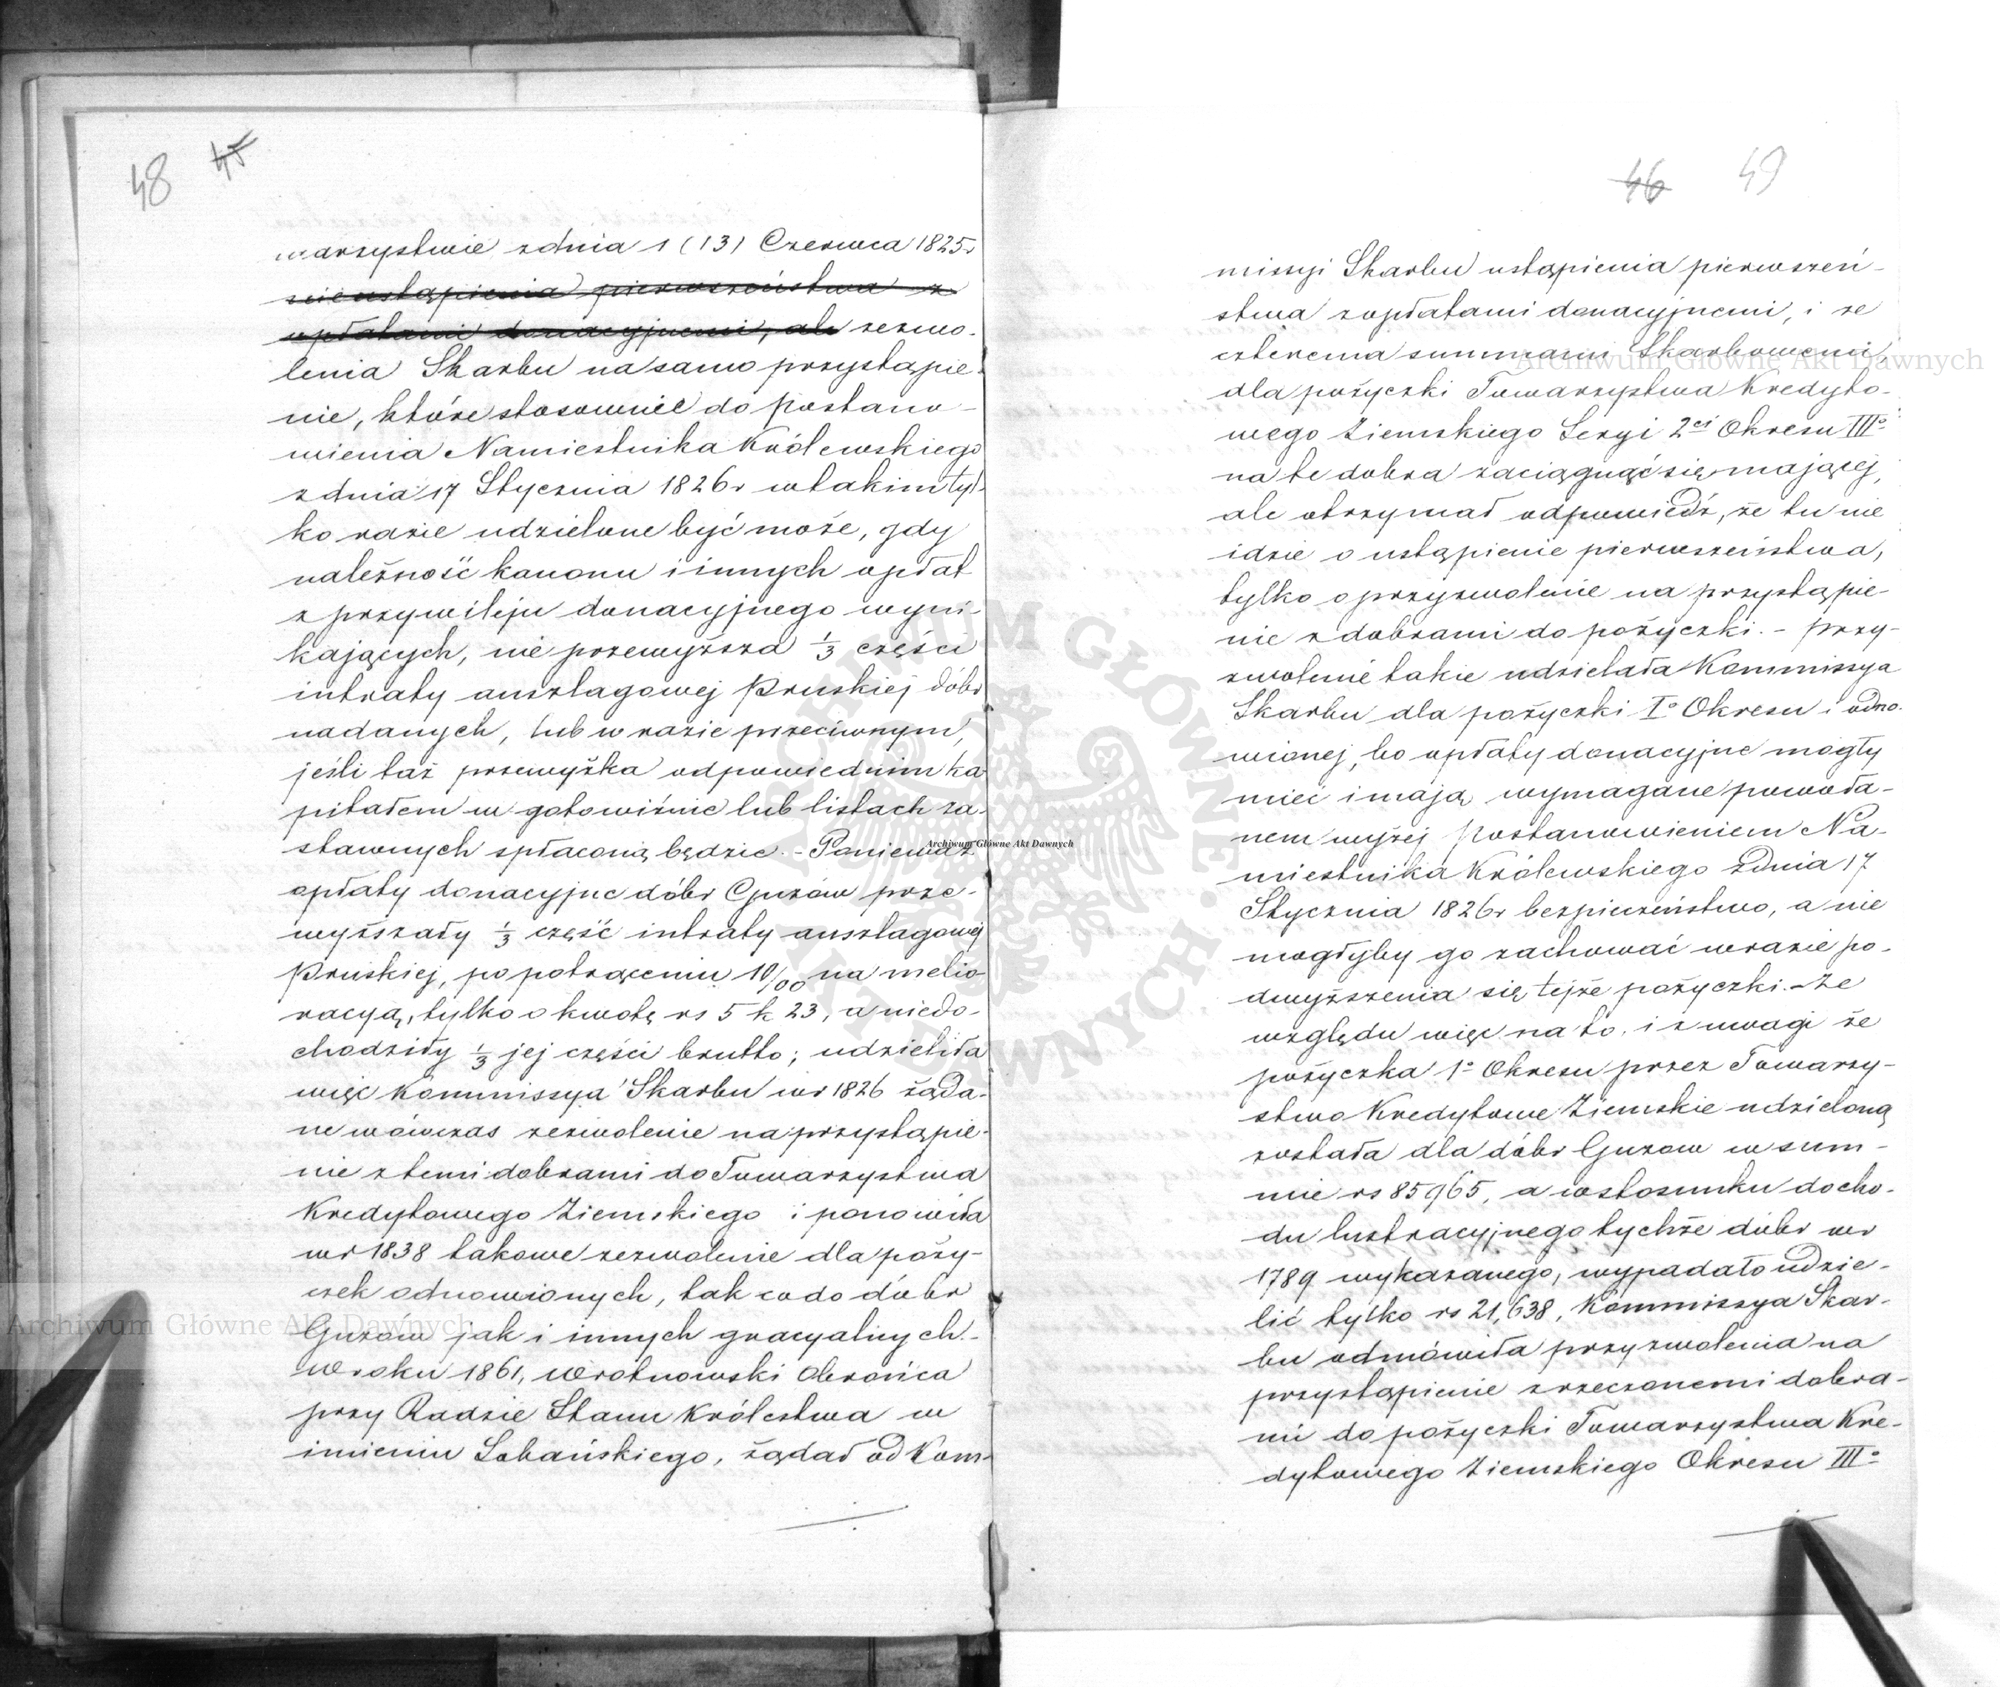 48 45
warzystwie zdnia 1 (13) Czerwca 1825r
nie ustąpienia pierwszeństwa z
opłatami donacyjnemi, ale zezwo-
lenia Skarbu na samo przystąpie-
nie, które stosownie do Postano-
wienia Namiestnika Królewskiego
z dnia 17 Stycznia 1826r w takim tyl-
ko razie udzielone być może, gdy
należność kanonu i innych opłat
z przywileju donacyjnego wyni-
kających, nie przewyższa 1/3 części
intraty anszlagowej Pruskiej dóbr
nadanych, lub w razie przeciwnym,
jeśli taż przewyżka odpowiednim ka
pitałem w gotowiźnie lub listach za-
stawnych spłaconą będzie. - Ponieważ
opłaty donacyjne dóbr Guzów prze-
wyższały 1/3 część intraty anszlagowej
Pruskiej, po potrąceniu 10/00 na melio
racyą, tylko o kwotę rs 5 k 23, a niedo-
chodziły 1/3 jej części brutto; udzieliła
więc Kommissya Skarbu wr 1826 żąda-
ne wówczas zezwolenie na przystąpie-
nie z temi dobrami do Towarzystwa
Kredytowego Ziemskiego i ponowiła
wr 1838 takowe zezwolenie dla poży-
czek odnowionych, tak co do dóbr
Guzów jak i innych gracyalnych. -
W roku 1861, Wrotnowski Obrońca
przy Radzie Stanu Królestwa w
imieniu Sobańskiego, żądał od Kom-
46 49
missyi Skarbu ustąpienia pierwszeń-
stwa z opłatami donacyjnemi, i ze
czterema summami Skarbowemi,
dla pożyczki Towarzystwa Kredyto-
wego Ziemskiego Seryi 2ei Okresu IIIo
na te dobra zaciągnąć się mającej,
ale otrzymał odpowiedź, że tu nie
idzie o ustąpienie pierwszeństwa,
tylko o przyzwolenie na przystąpie-
nie z dobrami do pożyczki. - Przy-
zwolenie takie udzielała Kommissya
Skarbu dla pożyczki Io Okresu i odno-
wionej, bo opłaty donacyjne mogły
mieć i mają wymagane powoła-
nem wyżej Postanowieniem Na-
miestnika Królewskiego z dnia 17
Stycznia 1826r bezpieczeństwo, a nie
mogłyby go zachować w razie po-
dwyższenia się tejże pożyczki. - Ze
względu więc na to, i z uwagi że
pożyczka 1o Okresu przez Towarzy-
stwo Kredytowe Ziemskie udzieloną
została dla dóbr Guzow w sum-
mie rs 85965, a w stosunku docho-
du lustracyjnego tychże dóbr wr
1789 wykazanego, wypadało udzie-
lić tylko rs 21,638, Kommissya Skar-
bu odmówiła przyzwolenia na
przystąpienie z rzeczonemi dobra-
mi do pożyczki Towarzystwa Kre-
dytowego Ziemskiego Okresu IIIo
Archiwum Główne Akt Dawnych
Archiwum Główne Akt Dawnych
Archiwum Główne Akt Dawnych
ARCHIWUM GŁÓWNE AKT DAWNYCH